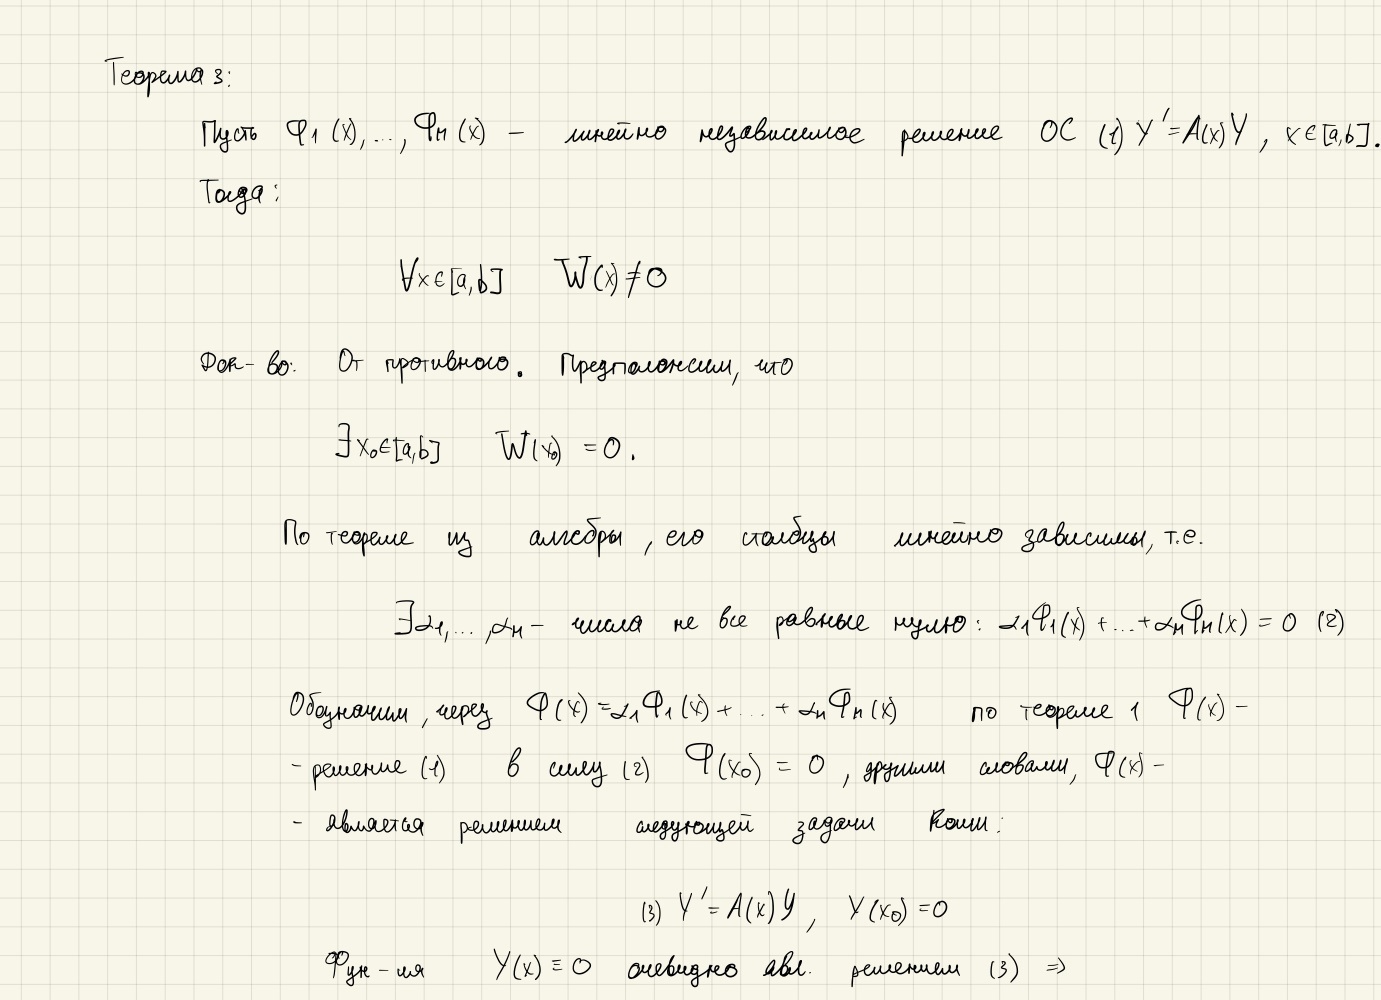 Теорема 3:
Пусть φ1(x),...,φn(x) – линейно независимое решение ОС (1) Y'=A(x)Y, x∈[a,b].
Тогда:
∀x∈[a,b] W(x)≠0
Док-во: От противного. Предположим, что
∃x₀∈[a,b] W(x₀) =0.
По теореме из алгебры, его столбцы линейно зависимы, т.е.
∃α1,...,αn – числа не все равные нулю: α1φ1(x)+...+αnφn(x) = 0 (2)
Обозначим, через φ(x)=α1φ1(x)+...+αnφn(x) по теореме 1 φ(x) –
- решение (1) в силу (2) φ(x₀) = 0, другими словами, φ(x) –
- является решением следующей задачи Коши:
(3) Y'=A(x)Y, Y(x₀)=0
Фун-ия Y(x)≡0 очевидно явл. решением (3) ⇒